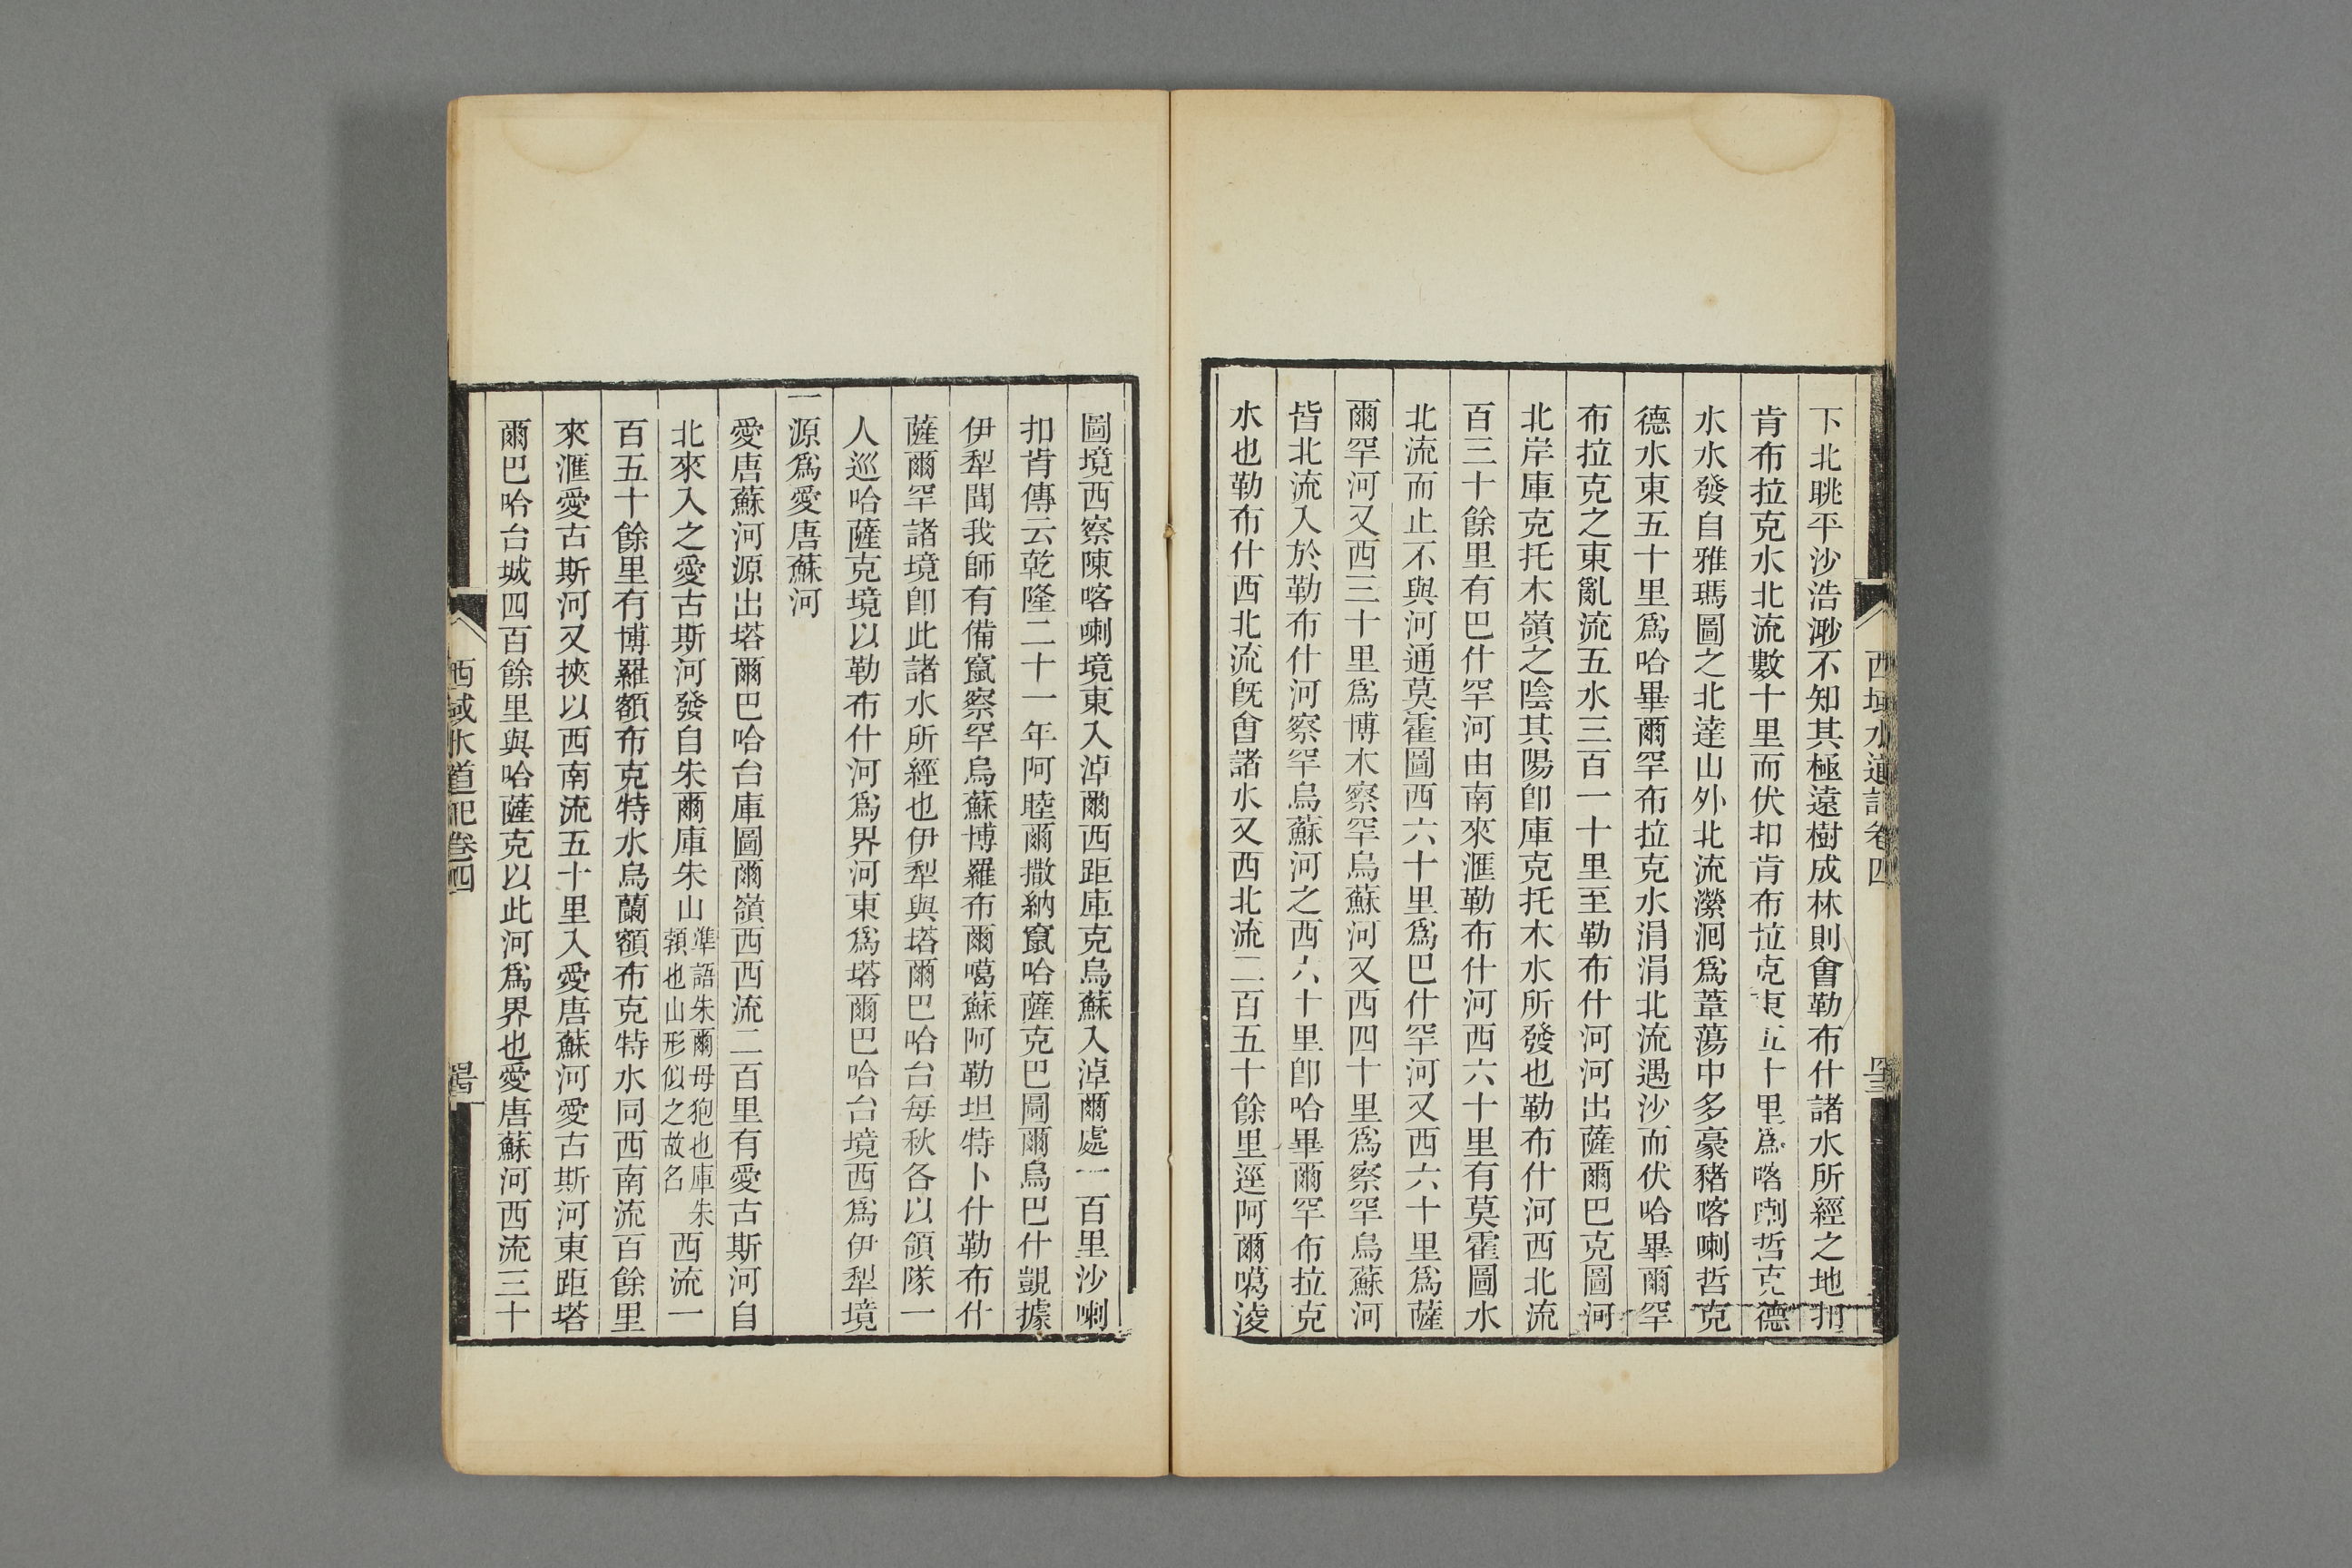 西域水道記卷四
下北眺平沙浩渺不知其極遠樹成林則會勒布什諸水所經之地扣
肯布拉克水北流數十里而伏扣肯布拉克東五十里爲喀喇哲克德
水水發自雅瑪圖之北達山外北流瀠洄爲葦蕩中多豪豬喀喇哲克
德水東五十里爲哈畢爾罕布拉克水涓涓北流遇沙而伏哈畢爾罕
布拉克之東亂流五水三百一十里至勒布什河河出薩爾巴克圖河
北岸庫克托木嶺之陰其陽卽庫克托木水所發也勒布什河西北流
百三十餘里有巴什罕河由南來滙勒布什河西六十里有莫霍圖水
北流而止不與河通莫霍圖西六十里爲巴什罕河又西六十里爲薩
爾罕河又西三十里爲博木察罕烏蘇河又西四十里爲察罕烏蘇河
皆北流入於勒布什河察罕烏蘇河之西六十里卽哈畢爾罕布拉克
水也勒布什西北流旣會諸水又西北流二百五十餘里逕阿爾噶淩
圖境西察陳喀喇境東入淖爾西距庫克烏蘇入淖爾處一百里沙喇
扣肯傳云乾隆二十一年阿睦爾撒納竄哈薩克巴圖爾烏巴什覬據
伊犁聞我師有備竄察罕烏蘇博羅布爾噶蘇阿勒坦特卜什勒布什
薩爾罕諸境卽此諸水所經也伊犁與塔爾巴哈台每秋各以領隊一
人巡哈薩克境以勒布什河爲界河東爲塔爾巴哈台境西爲伊犁境
一源爲愛唐蘇河
愛唐蘇河源出塔爾巴哈台庫圖爾嶺西西流二百里有愛古斯河自
北來入之愛古斯河發自朱爾庫朱山準語朱爾母狍也庫朱頸也山形似之故名西流一
百五十餘里有博羅額布克特水烏蘭額布克特水同西南流百餘里
來滙愛古斯河又挾以西南流五十里入愛唐蘇河愛古斯河東距塔
爾巴哈台城四百餘里與哈薩克以此河爲界也愛唐蘇河西流三十
西域水道記卷四